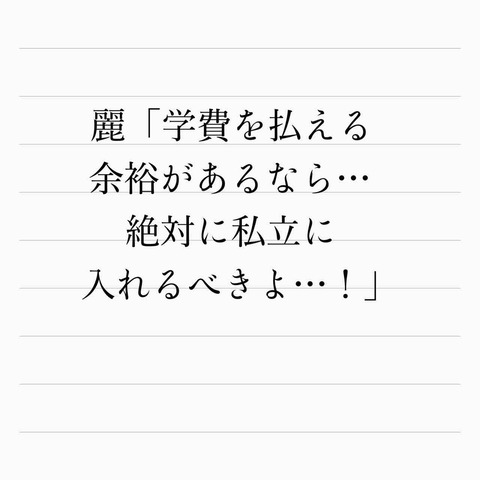 麗「学費を払える
余裕があるなら…
絶対に私立に
入れるべきよ…！」